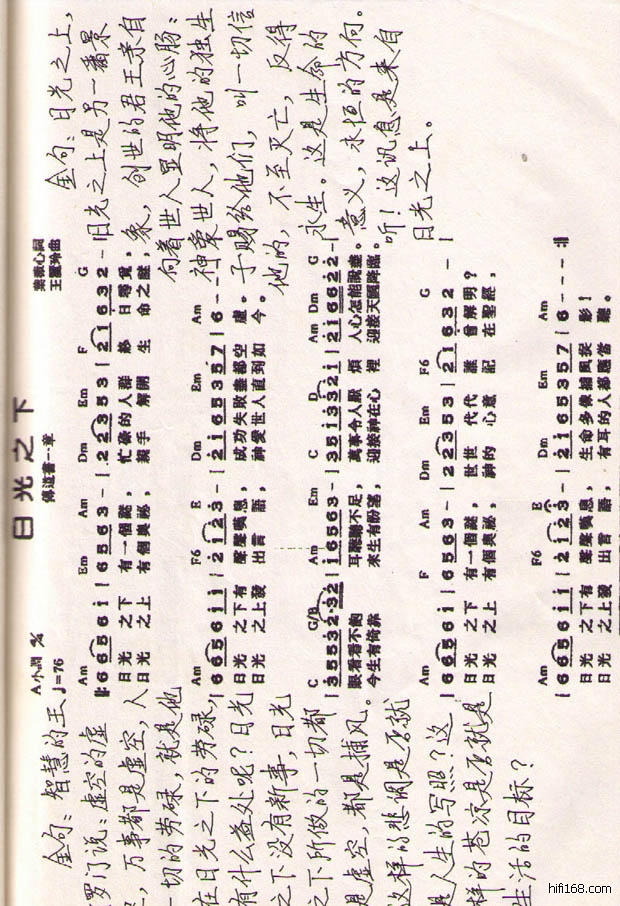 日光之下
傳道書一章
A小調 ♩=76
葉薇心詞
王麗玲曲
Am Em Am Dm Em F G
6 6 5 6 i | 6 5 6 3 - | 2 2 3 5 3 | 2 1 6 3 2 -
日光 之下 有一個謎， 忙碌的人群 終日尋覓，
日光 之上 有個奧祕， 親手 解開 生命之謎，
Am F6 E Dm Em Am
6 6 5 6 i i | 2 i 2 3 - | 2 i 6 5 3 5 7 | 6 - - -
日光 之下有 聲聲嘆息， 成功失敗盡都空虛。
日光 之上發 出言語， 神愛世人直到如今。
C G/B Am Em C D Am Dm G
3 5 5 3 2·3 2 | i 6 5 6 3 - | 3 5 i 3 3 2 i | 2 i 6 6 2 2 -
眼看看不飽 耳聽聽不足， 萬事令人厭煩 人心怎能說盡。
今生有倚靠 來生有盼望， 迎接神在心裡 迎接天國降臨。
Am F Am Dm Em F6 G
6 6 5 6 i | 6 5 6 3 - | 2 2 3 5 3 | 2 1 6 3 2 -
日光 之下 有一個謎， 世世代代 誰曾解明？
日光 之上 有個奧祕， 神的心意 記在聖經，
Am F6 E Dm Em Am
6 6 5 6 i i | 2 i 2 3 - | 2 i 6 5 3 5 7 | 6 - - -
日光 之下有 聲聲嘆息， 生命多像捕風捉影！
日光 之上發 出言語， 有耳的人都應當聽。
金句：智慧的王
罗门说：虚空的虚
，万事都是虚空，人
切的劳碌，就是他
在日光之下的劳碌，
有什么益处呢？日光
之下没有新事，日光
之下所做的一切都
是虚空，都是捕风。
这样的悲调是否就
是人生的写照？这
样的苍凉是否就是
生活的目标？
金句：日光之上，
日光之上是另一番景
象，创世的君王亲自
向着世人显明他的心肠：
神爱世人，将他的独生
子赐给他们，叫一切信
他的，不至灭亡，反得
永生。这是生命的
意义，永恒的方向。
听！这讯息是来自
日光之上。
hifi168.com